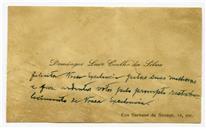 Domingos Leite Coelho da Silva
felicita Vossa Excelencia pelas suas melhoras
e faz ardentes votos pelo prompto restabe-
lecimento de Vossa Excelencia.
Rua Barbosa du Bocage,